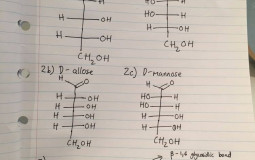 H HO
H OH H OH
H OH H OH
CH2OH CH2OH
2b) D-allose 2c) D-mannose
H O H O
H OH HO H
H OH HO H
H OH H OH
H OH H OH
CH2OH CH2OH
→ β-1,6 glycosidic bond